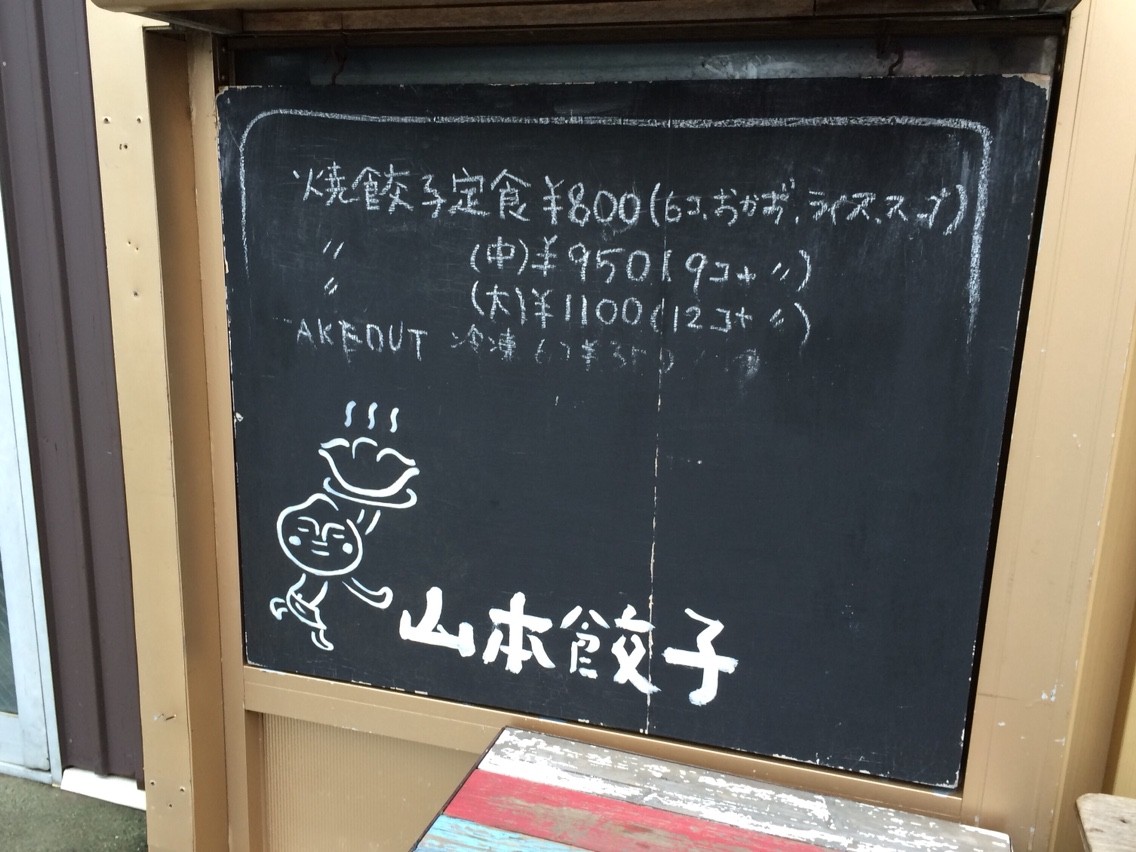 焼餃子定食¥800(6コ、おかず、ライス、スープ)
〃 (中)¥950(9コ+〃)
〃 (大)¥1100(12コ+〃)
AKEOUT 冷凍 ¥350
山本餃子